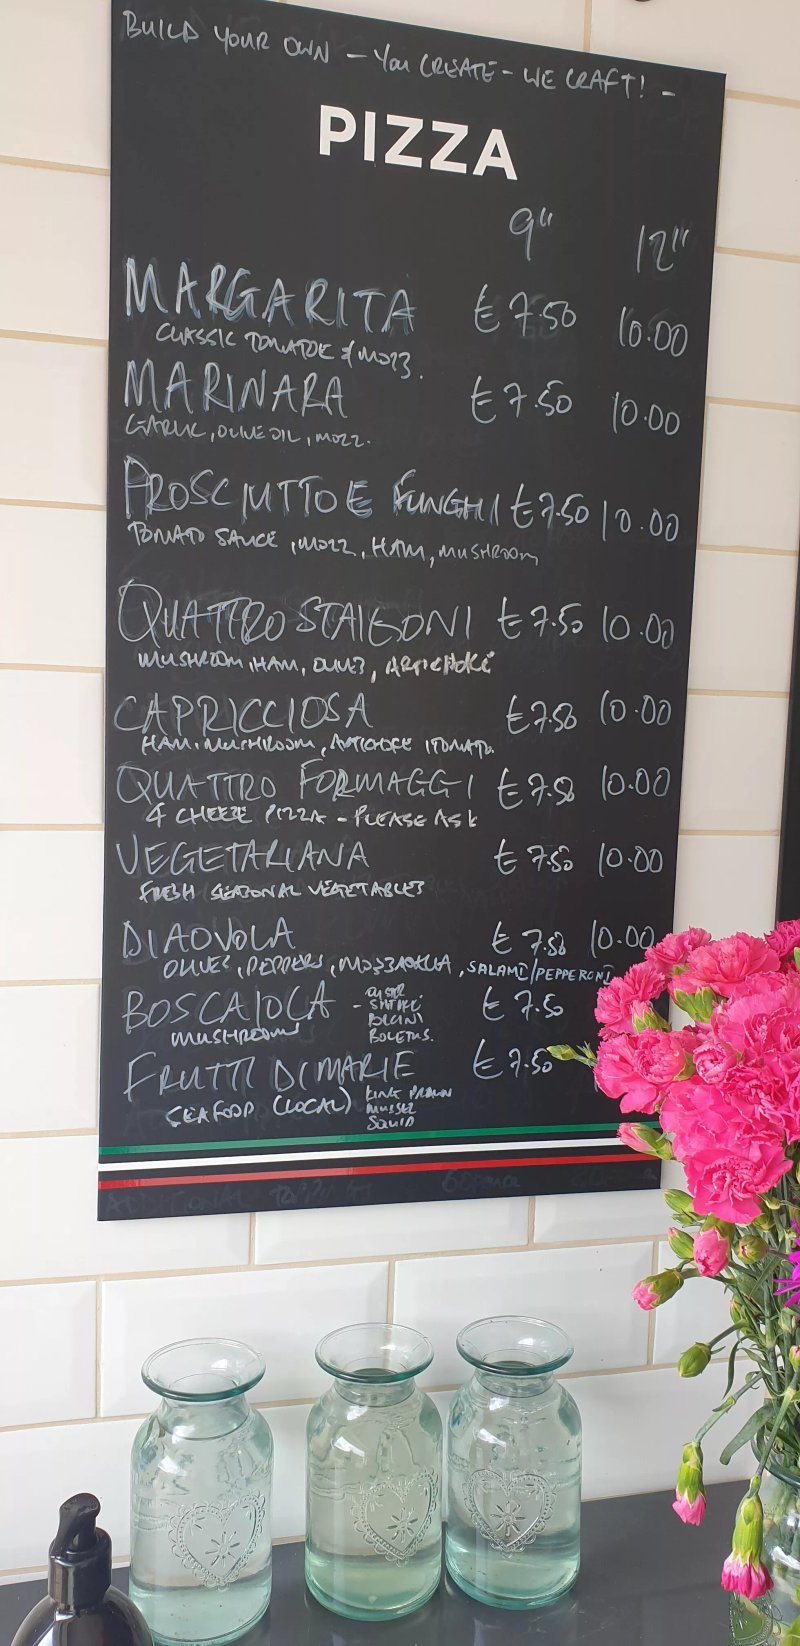 BUILD YOUR OWN - YOU CREATE - WE CRAFT! -
PIZZA
9" 12"
MARGARITA £7.50 10.00
CLASSIC TOMATOE & MOZZ.
MARINARA £7.50 10.00
GARLIC, OLIVE OIL, MOZZ.
PROSCIUTTO E FUNGHI £7.50 10.00
TOMATO SAUCE, MOZZ, HAM, MUSHROOM
QUATTRO STAIGONI £7.50 10.00
MUSHROOM, HAM, OLIVES, ARTICHOKE
CAPRICCIOSA £7.50 10.00
HAM, MUSHROOM, ARTICHOKE, TOMATO.
QUATTRO FORMAGGI £7.50 10.00
4 CHEEZE PIZZA - PLEASE ASK
VEGETARIANA £7.50 10.00
FRESH SEASONAL VEGETABLES
DIAOVOLA £7.50 10.00
OLIVES, PEPPERS, MOZZARELLA, SALAMI/PEPPERONI
BOSCAIOLA £7.50
MUSHROOMS - OYSTER
SHITAKE
PORCINI
BOLETUS.
FRUTTI DI MARIE £7.50
SEAFOOD (LOCAL) KING PRAWN
MUSSEL
SQUID
ADDITIONAL